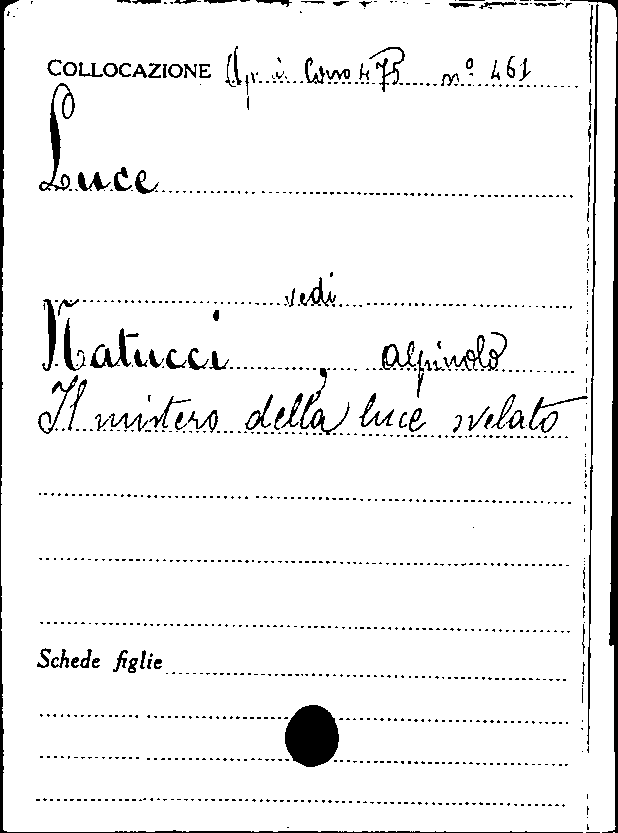 COLLOCAZIONE Op. in Corso 475 nº 461
Luce
vedi
Natucci, Alpinolo
Il mistero della luce svelato
Schede figlie